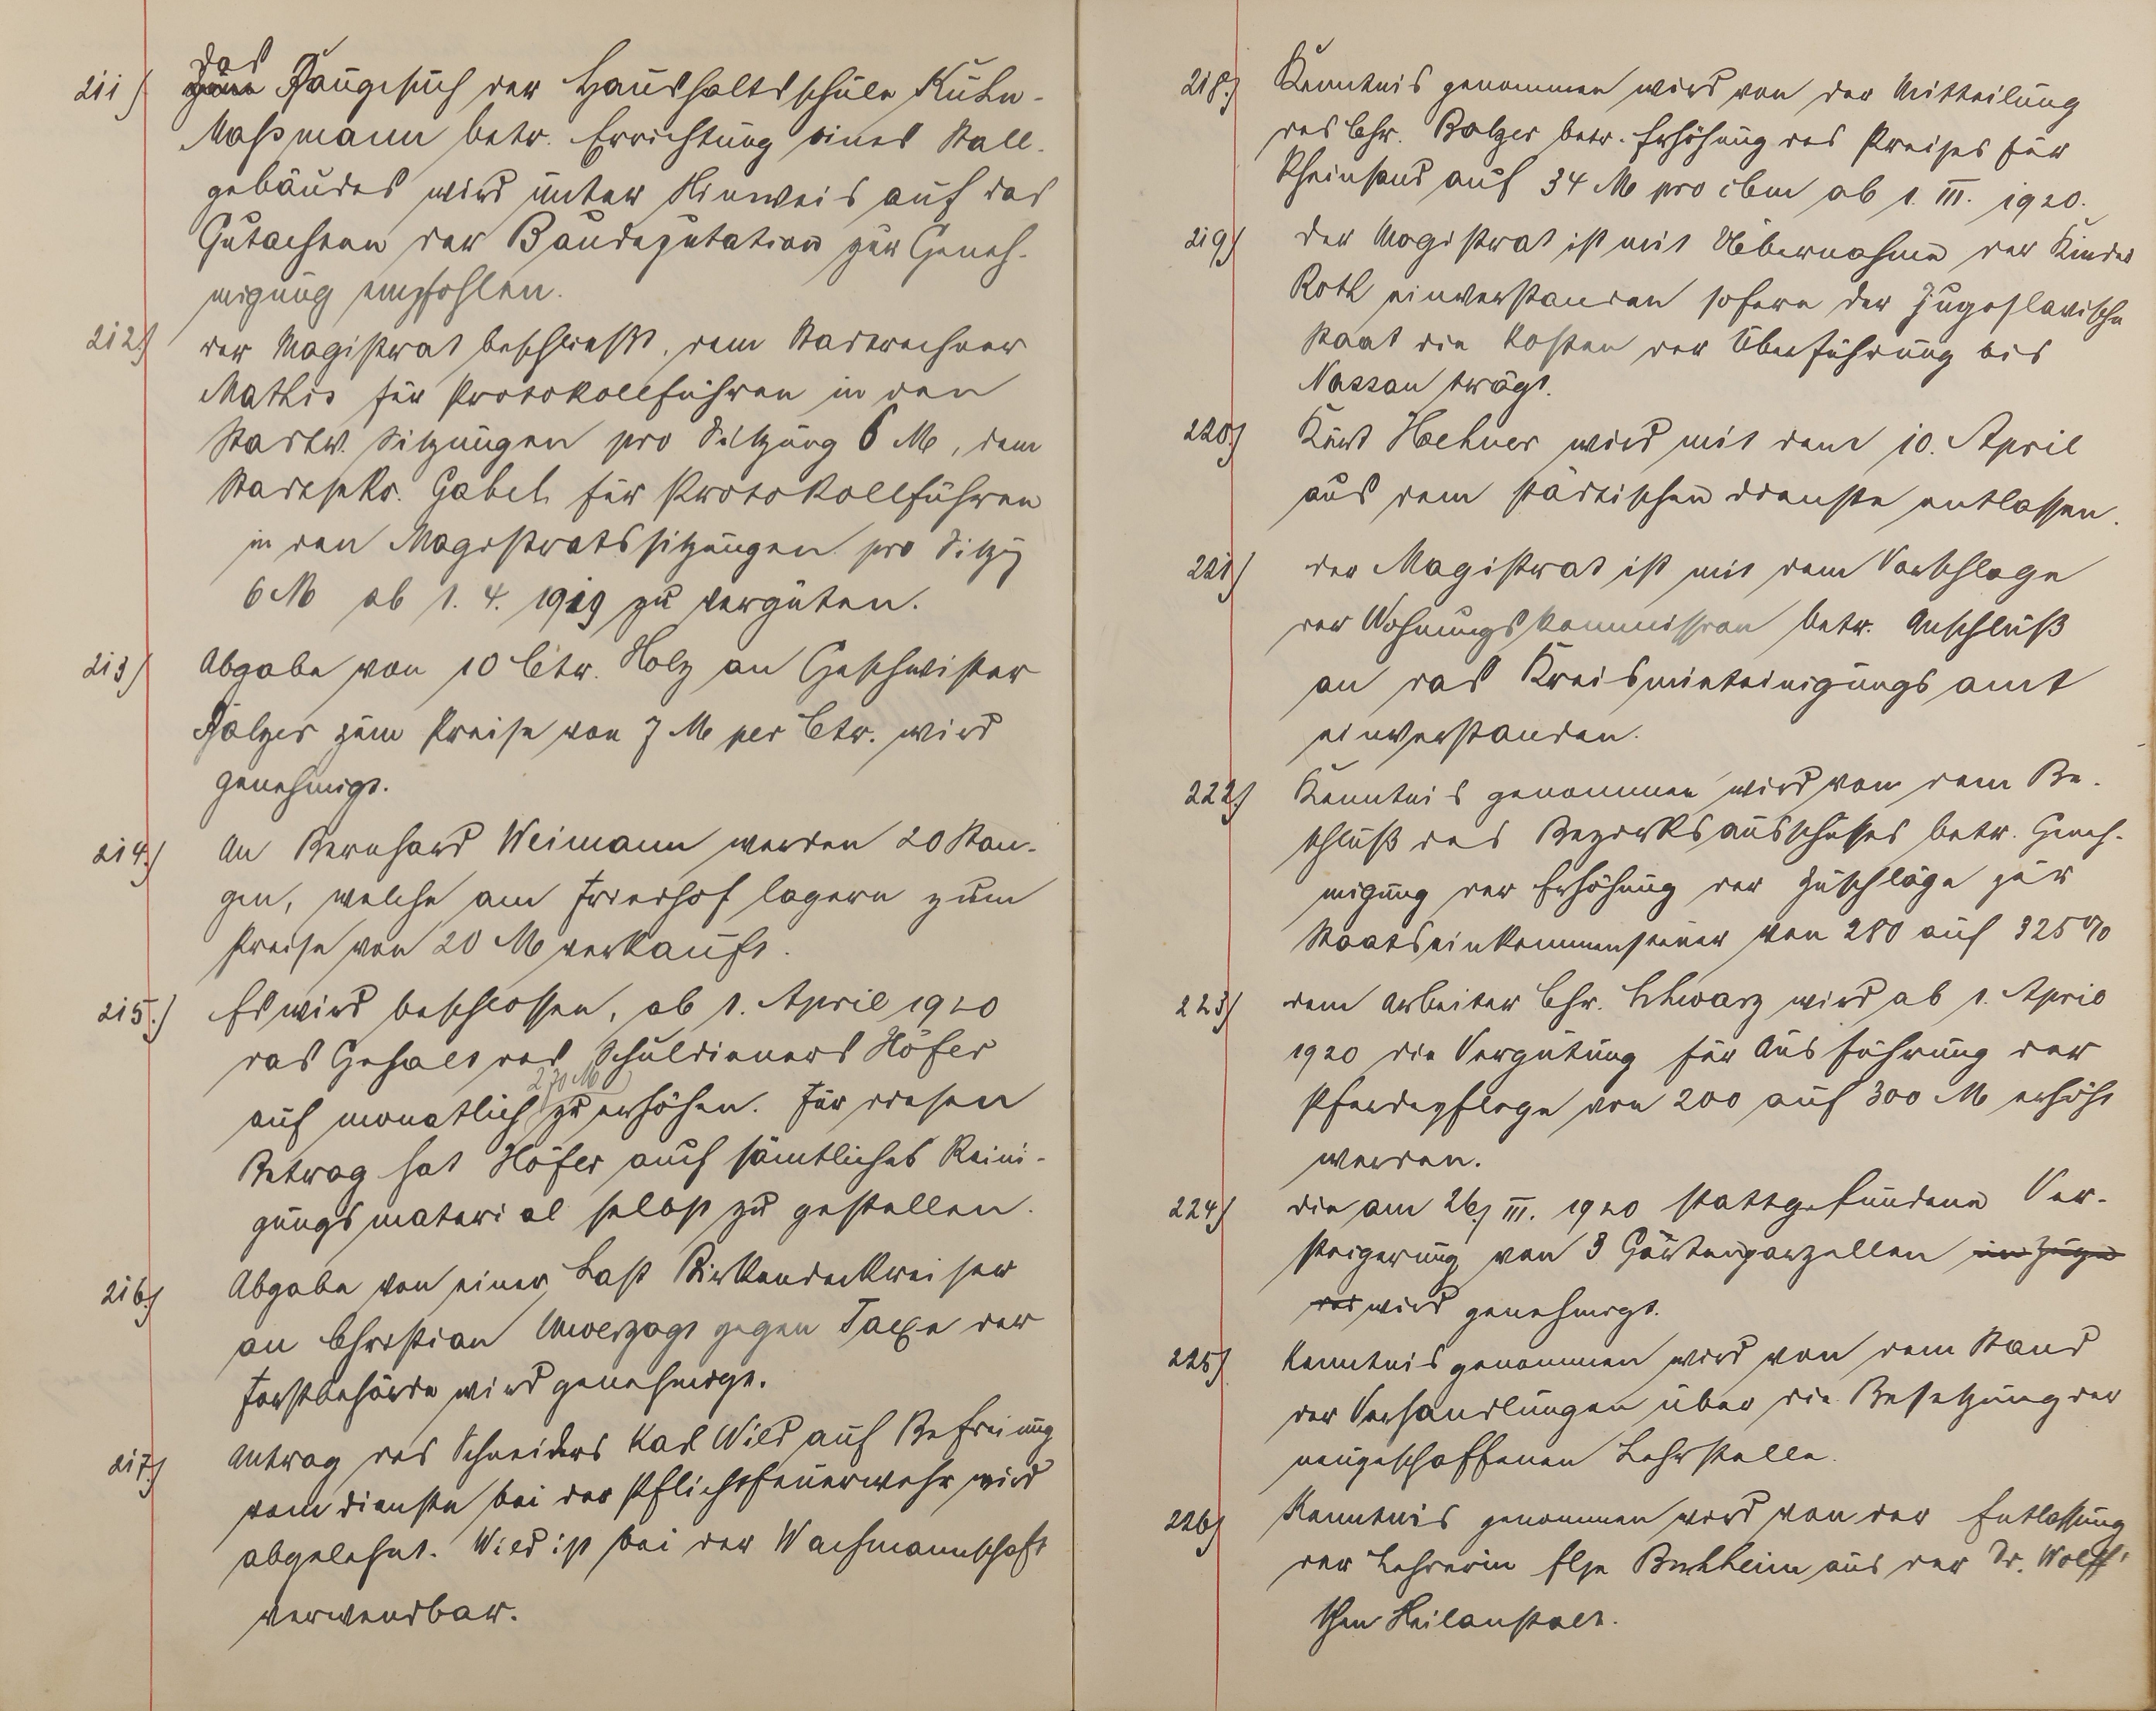 211) das Baugesuch der Haushaltsschule Kühn-
Maßmann betr. Errichtung eines Stall-
gebäudes wird unter Hinweis auf das
Gutachten der Baudeputation zur Geneh-
migung empfohlen.
212) der Magistrat beschließt, dem Stadtrechner
Mathis für Protokollführen in den
Stadtv. Sitzungen pro Sitzung 6 M, dem
Stadtsekr. Gabel für Protokollführen
in den Magistratssitzungen pro Sitzg
6 M ab 1. 4. 1919 zu vergüten.
213) Abgabe von 10 Ctr. Holz an Geschwister
Balzer zum Preise von 7 M per Ctr. wird
genehmigt.
214.) An Bernhard Weimann werden 20 Stan-
gen, welche am Friedhof lagern zum
Preise von 20 M verkauft.
215.) Es wird beschlossen, ab 1. April 1920
das Gehalt des Schuldieners Höfer
auf monatlich 270 M zu erhöhen. Für diesen
Betrag hat Höfer auch sämtliches Reini-
gungsmaterial selbst zu gestellen.
216.) Abgabe von einer Last Birkendeckreiser
an Christian Unverzagt gegen Taxe der
Forstbehörde wird genehmigt.
217.) Antrag des Schneiders Karl Wild auf Befreiung
vom Dienste bei der Pflichtfeuerwehr wird
abgelehnt. Wild ist bei der Wachmannschaft
verwendbar.
218.) Kenntnis genommen wird von der Mitteilung
des Chr. Balzer betr. Erhöhung des Preises für
Rheinsand auf 34 M pro cbm ab 1. III. 1920.
219) der Magistrat ist mit Übernahme der Kinder
Roth einverstanden sofern der Jugoslavische
Staat die Kosten der Überführung bis
Nassau trägt.
220.) Kurt Hoehner wird mit dem 10. April
aus dem städtischen Dienste entlassen.
221) der Magistrat ist mit dem Vorschlage
der Wohnungskommission betr. Anschluß
an das Kreismieteinigungsamt
einverstanden.
222.) Kenntnis genommen wird von dem Be-
schluß des Bezirksausschusses betr. Geneh-
migung der Erhöhung der Zuschläge zur
Staatseinkommensteuer von 280 auf 325%
223) dem Arbeiter Chr. Schwarz wird ab 1. April
1920 die Vergütung für Ausführung der
Pferdepflege von 200 auf 300 M erhöht
werden.
224) die am 26. III. 1920 stattgefundene Ver-
steigerung von 3 Gartenparzellen im Zuge
des wird genehmigt.
225) Kenntnis genommen wird von dem Stand
der Verhandlungen über die Besetzung der
neugeschaffenen Lehrstelle.
226) Kenntnis genommen wird von der Entlassung
der Lehrerin Else Buchheim aus der Dr. Wolff'
schen Heilanstalt.